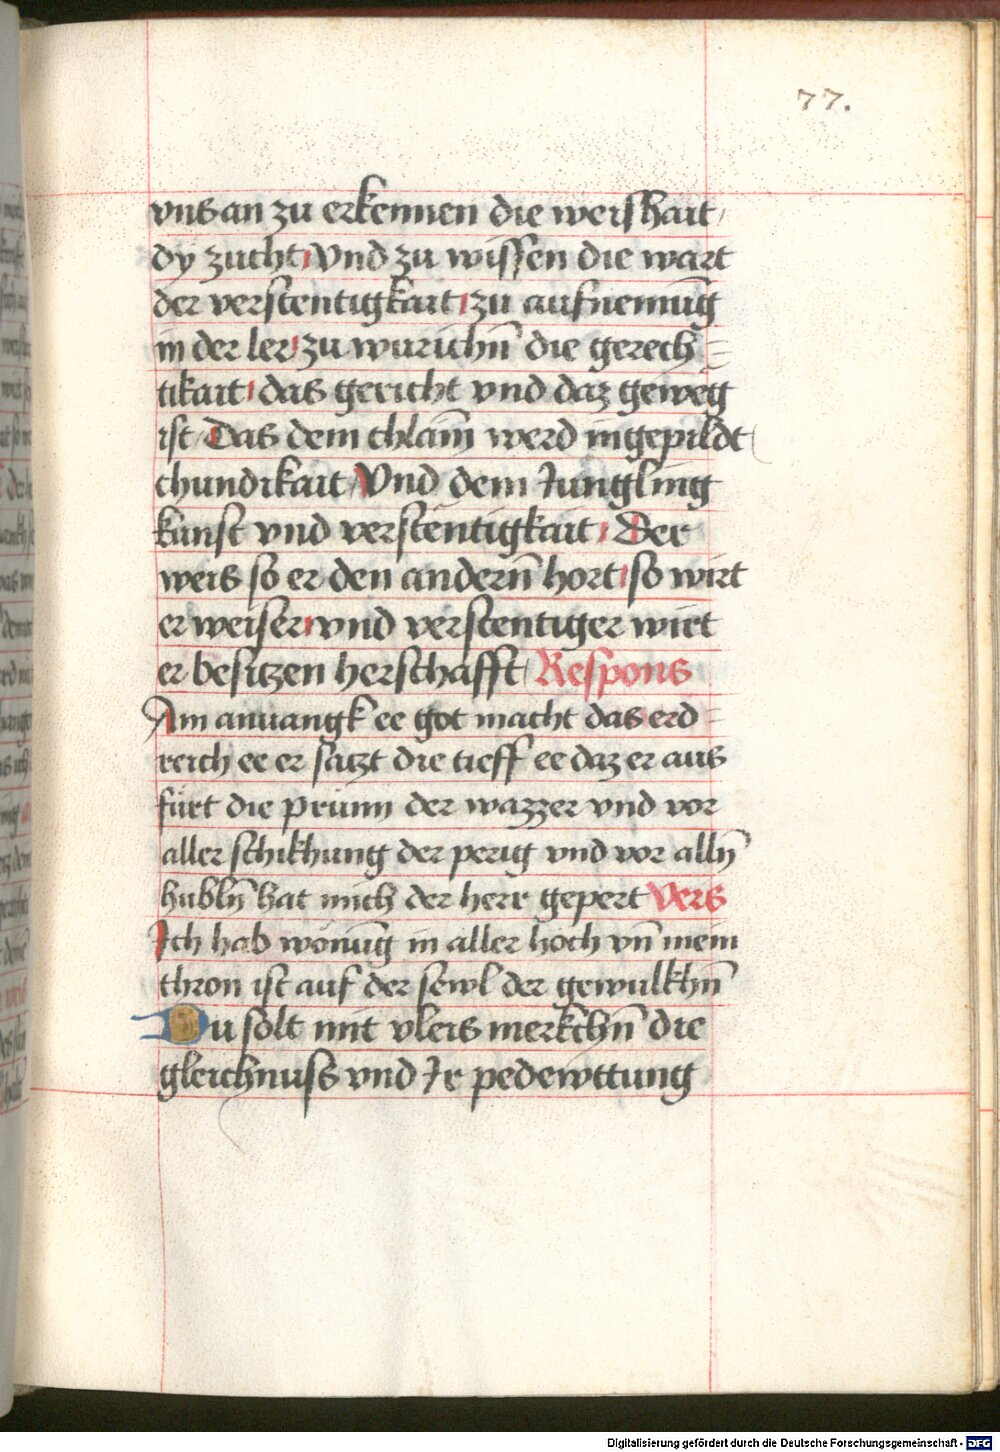 77.
vns an zu erkennen die weishait
dy zucht vnd zu wissen die wart
der verstentigkait zu aufnemūg
in der ler zu wurichn̄ die gerech
tikait das gericht vnd daz geweg
ist Das dem chlain̄ werd ingepildt
chundikait Vnd dem Jungling
kunst vnd verstentigkait Der
weis so er den andern̄ hort so wirt
er weiser vnd verstentiger wirt
er besitzen herschafft Respons
Am anuangk ee got macht das erd
reich ee er satzt die tieff ee daz er aus
fürt die prünn der wazzer vnd vor
aller schikhung der perig vnd vor alln̄
hübln̄ hat mich der herr gepert Vers
Ich hab wonūg in aller hoch vn̄ mein
thron ist auf der sewl der gewulkhn̄
Du solt mit vleis merkchn̄ die
gleichnuss vnd Jr pedewttung
Digitalisierung gefördert durch die Deutsche Forschungsgemeinschaft - DFG